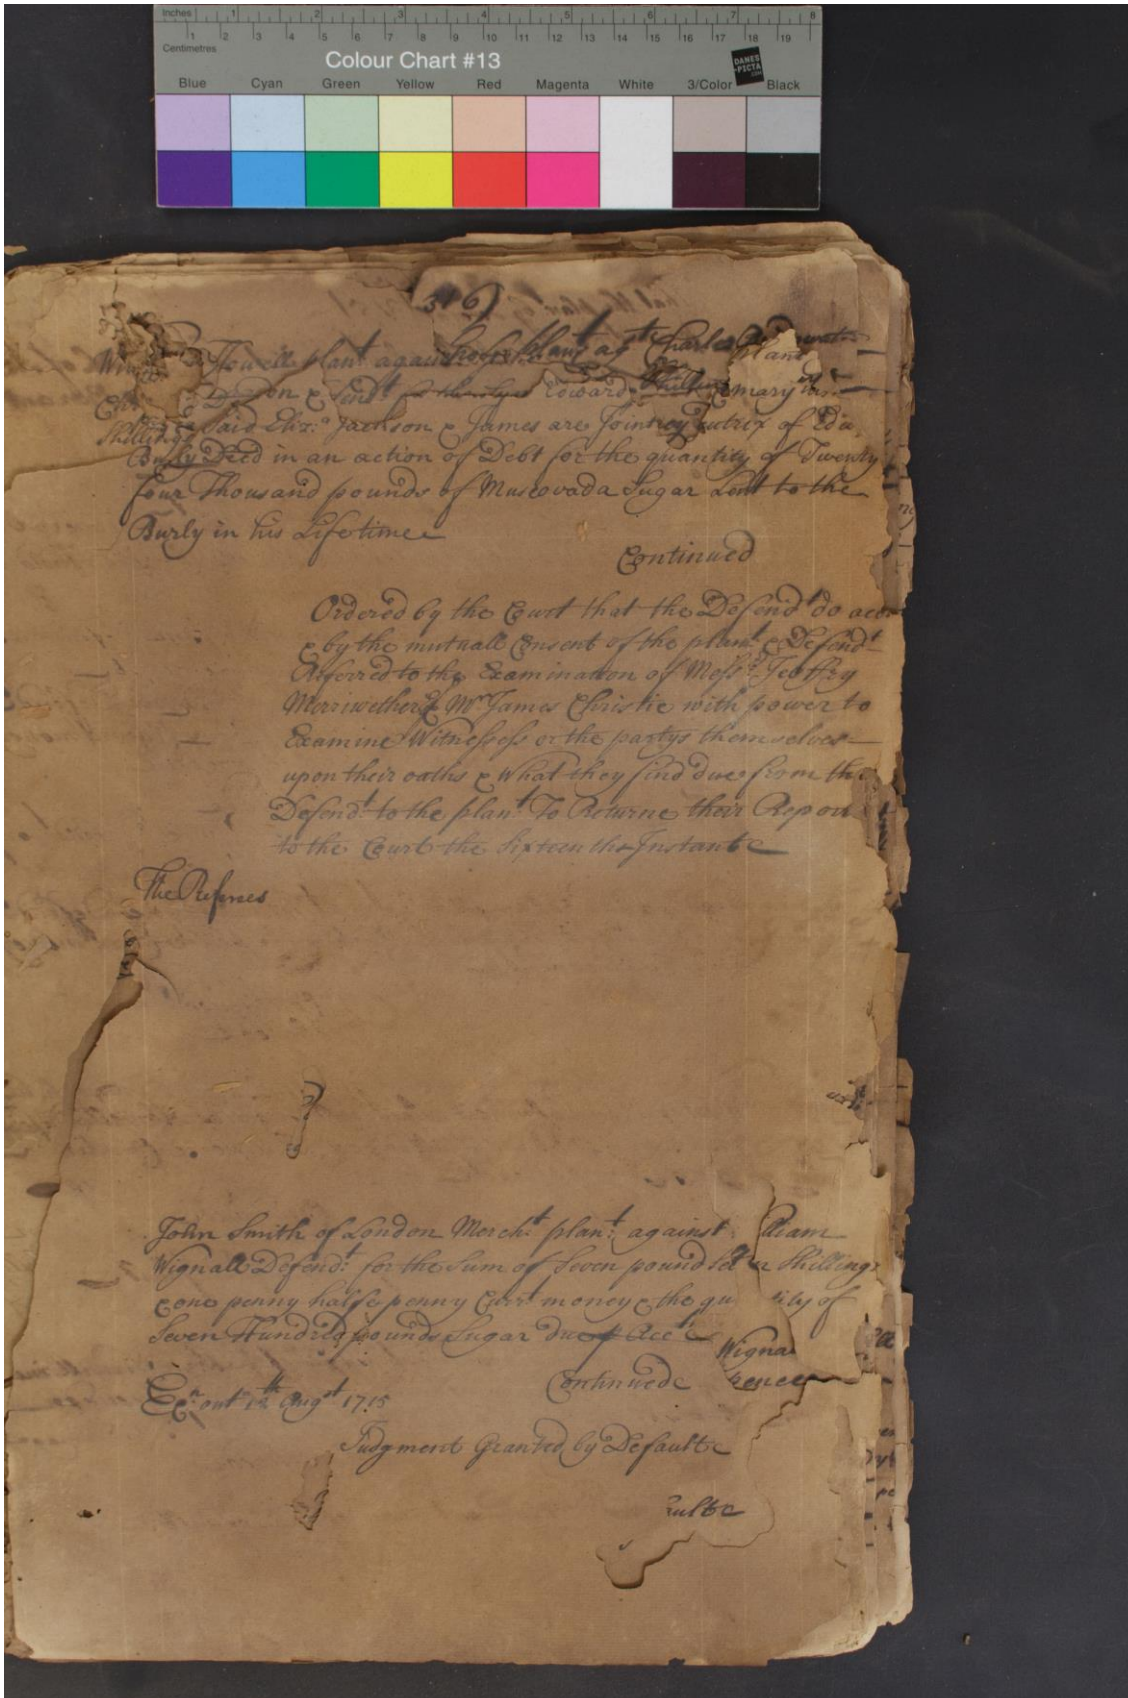 Inches 1 2 3 4 5 6 7 8
Centimetres 1 2 3 4 5 6 7 8 9 10 11 12 13 14 15 16 17 18 19
Colour Chart #13
DANES
-PICTA
.COM
Blue Cyan Green Yellow Red Magenta White 3/Color Black
316)
Jowell plant: agai plant agst Charles
on & Edward & mary
Shillings Said Eliz: Jackson & James are Joint of Edw
Burly Died in an action of Debt for the quantity of Twenty
four Thousand pounds of Muscovada Sugar Lent to the
Burly in his Lifetime
Continued
Ordered by the Court that the Defendt do acc
& by the mutuall Consent of the plant: & Defendt
Referred to the Examination of Messrs: Jeoffry
Merriwether & Mr James Christie with power to
Examine Witnesses or the partys themselves
upon their oaths & What they find due from the
Defendt: to the plant: To Returne their Report
to the Court the Sixteenth Instant
The Referees
John Smith of London Mercht: plant: against lliam
Wignall Defendt: for the Sum of Seven pound Shillings
& one penny halfe penny Currt: money & the qu tity of
Seven Hundred pounds Sugar due p Acct
Wigna
Continued
rence
Exn: out 12th Augst 1715
Judgment Granted by Default
ault